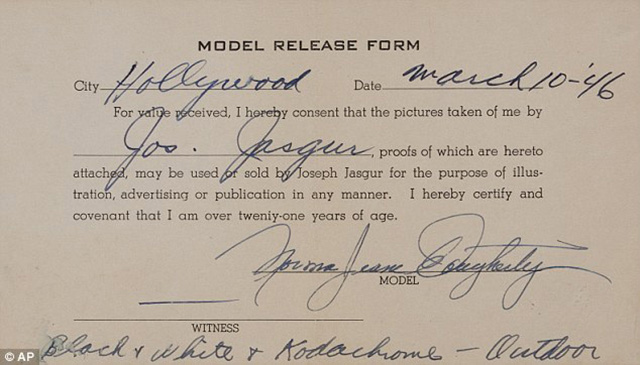 MODEL RELEASE FORM
City Hollywood Date March 10-'46
For value received, I hereby consent that the pictures taken of me by
Jos. Jasgur, proofs of which are hereto
attached, may be used or sold by Joseph Jasgur for the purpose of illus-
tration, advertising or publication in any manner. I hereby certify and
covenant that I am over twenty-one years of age.
Norma Jeane Dougherty
MODEL
WITNESS
Black & White & Kodachrome - Outdoor
© AP